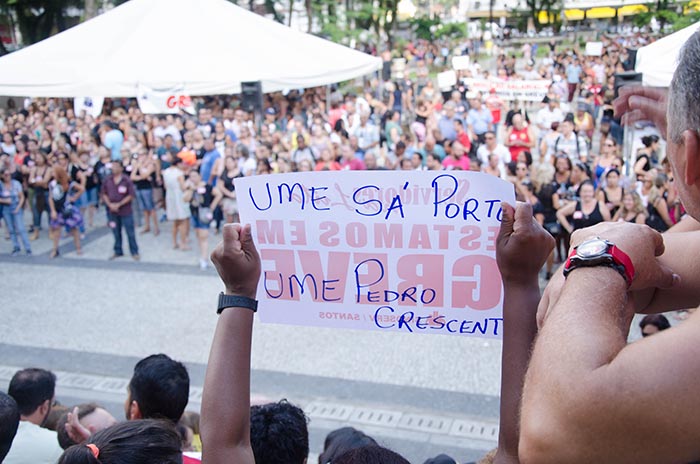 UME SÁ PORTO
ESTAMOS EM
GREVE
UME PEDRO
CRESCENT